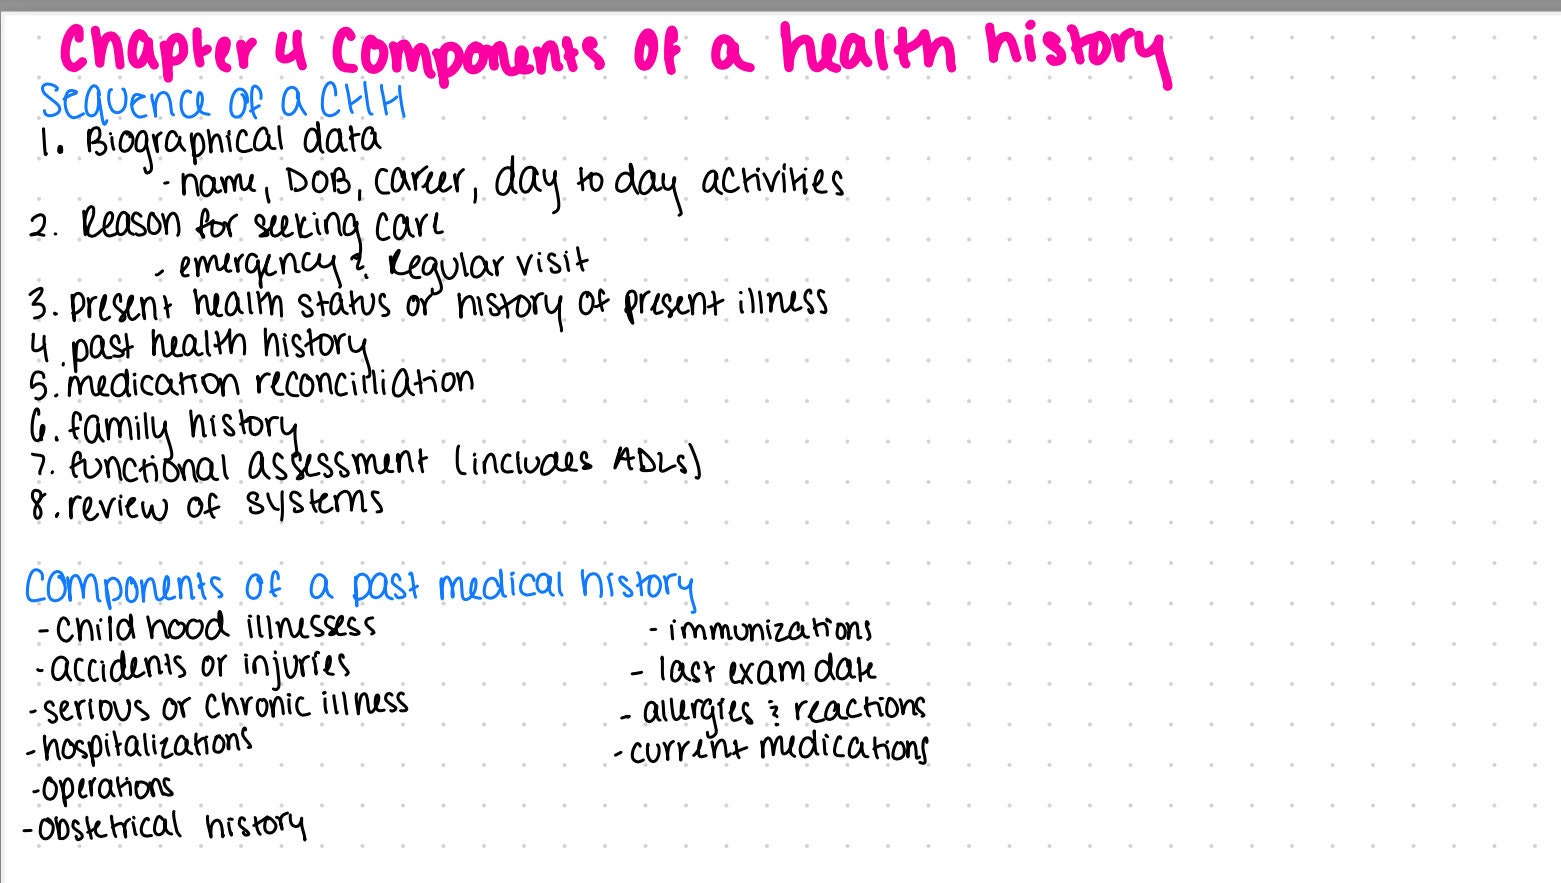 Chapter 4 Components of a health history
Sequence of a CHH
1. Biographical data
- name, DOB, career, day to day activities
2. Reason for seeking care
- emergency & Regular visit
3. present health status or history of present illness
4. past health history
5. medication reconcilliation
6. family history
7. functional assessment (includes ADLs)
8. review of systems
Components of a past medical history
- Childhood illnessess
- accidents or injuries
- serious or chronic illness
- hospitalizations
- Operations
- Obstetrical history
- immunizations
- last exam date
- allergies & reactions
- current medications